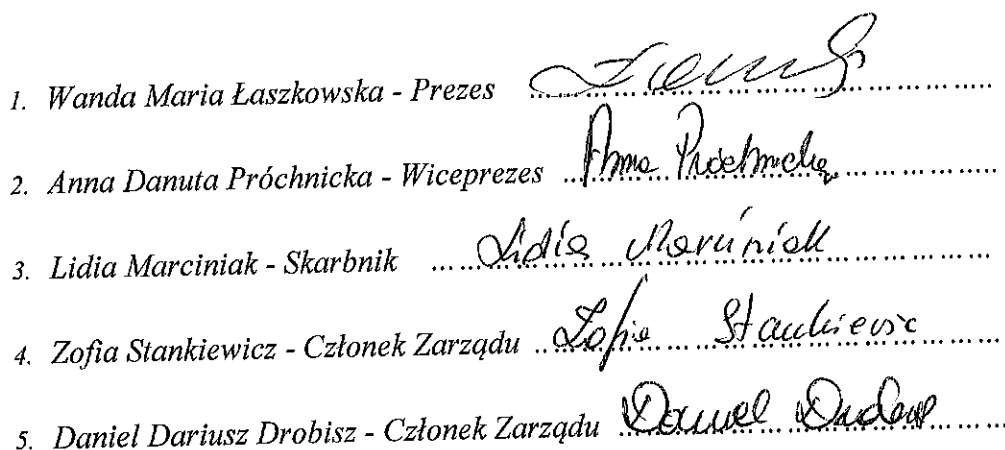 1. Wanda Maria Łaszkowska - Prezes
2. Anna Danuta Próchnicka - Wiceprezes Anna Próchnicka
3. Lidia Marciniak - Skarbnik Lidia Marciniak
4. Zofia Stankiewicz - Członek Zarządu Zofia Stankiewicz
5. Daniel Dariusz Drobisz - Członek Zarządu Daniel